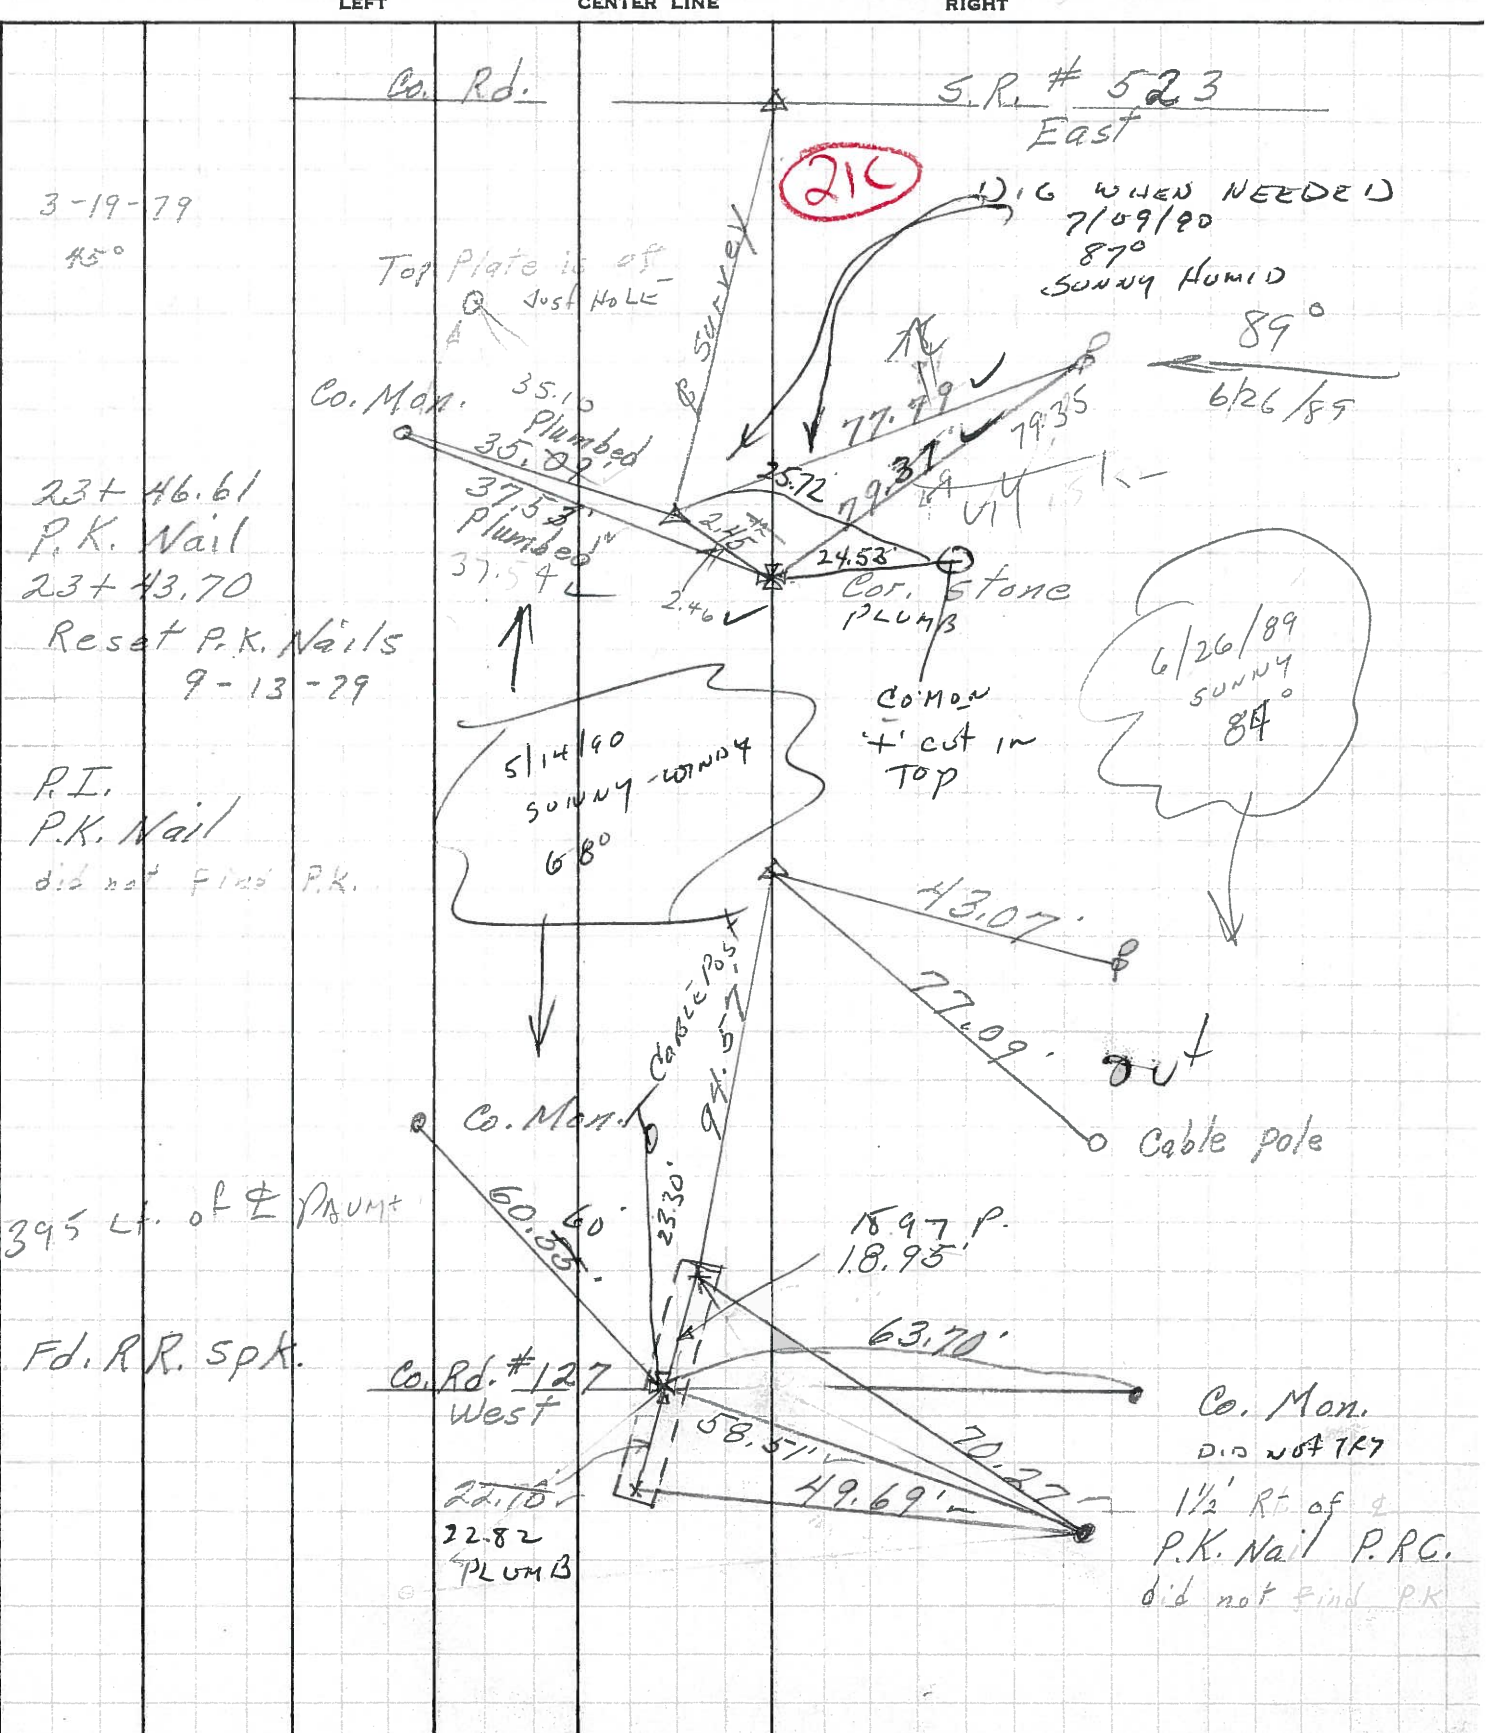 LEFT CENTER LINE RIGHT
Co. Rd. S.R. # 523
East
21C
3-19-79
45°
DIG WHEN NEEDED
7/09/90
87°
SUNNY HUMID
Top Plate is off
Just HOLE
℄ Survey
89°
6/26/89
Co. Mon.
35.10
Plumbed
35.09'
37.53'
Plumbed
37.54
77.79
79.37'
79.35
25.72
2.45
2.46
24.53
Cor. Stone
PLUMB
23+46.61
P.K. Nail
23+43.70
Reset P.K. Nails
9-13-79
6/26/89
SUNNY
84°
CO. MON
'+' cut in
TOP
5/14/90
SUNNY-WINDY
68°
P.I.
P.K. Nail
did not Find P.K.
43.07'
77.09'
out
Cable pole
CABLE POST
94.57'
Co. Mon.
60.55'
60'
23.30'
395 Lt. of ℄ PAVMt
18.97 P.
18.95'
63.70'
Fd. R.R. Spk.
Co. Rd. #127
West
Co. Mon.
DID NOT TRY
58.51'
70.27
49.69'
22.82
PLUMB
1½' Rt of ℄
P.K. Nail P.R.C.
did not Find P.K